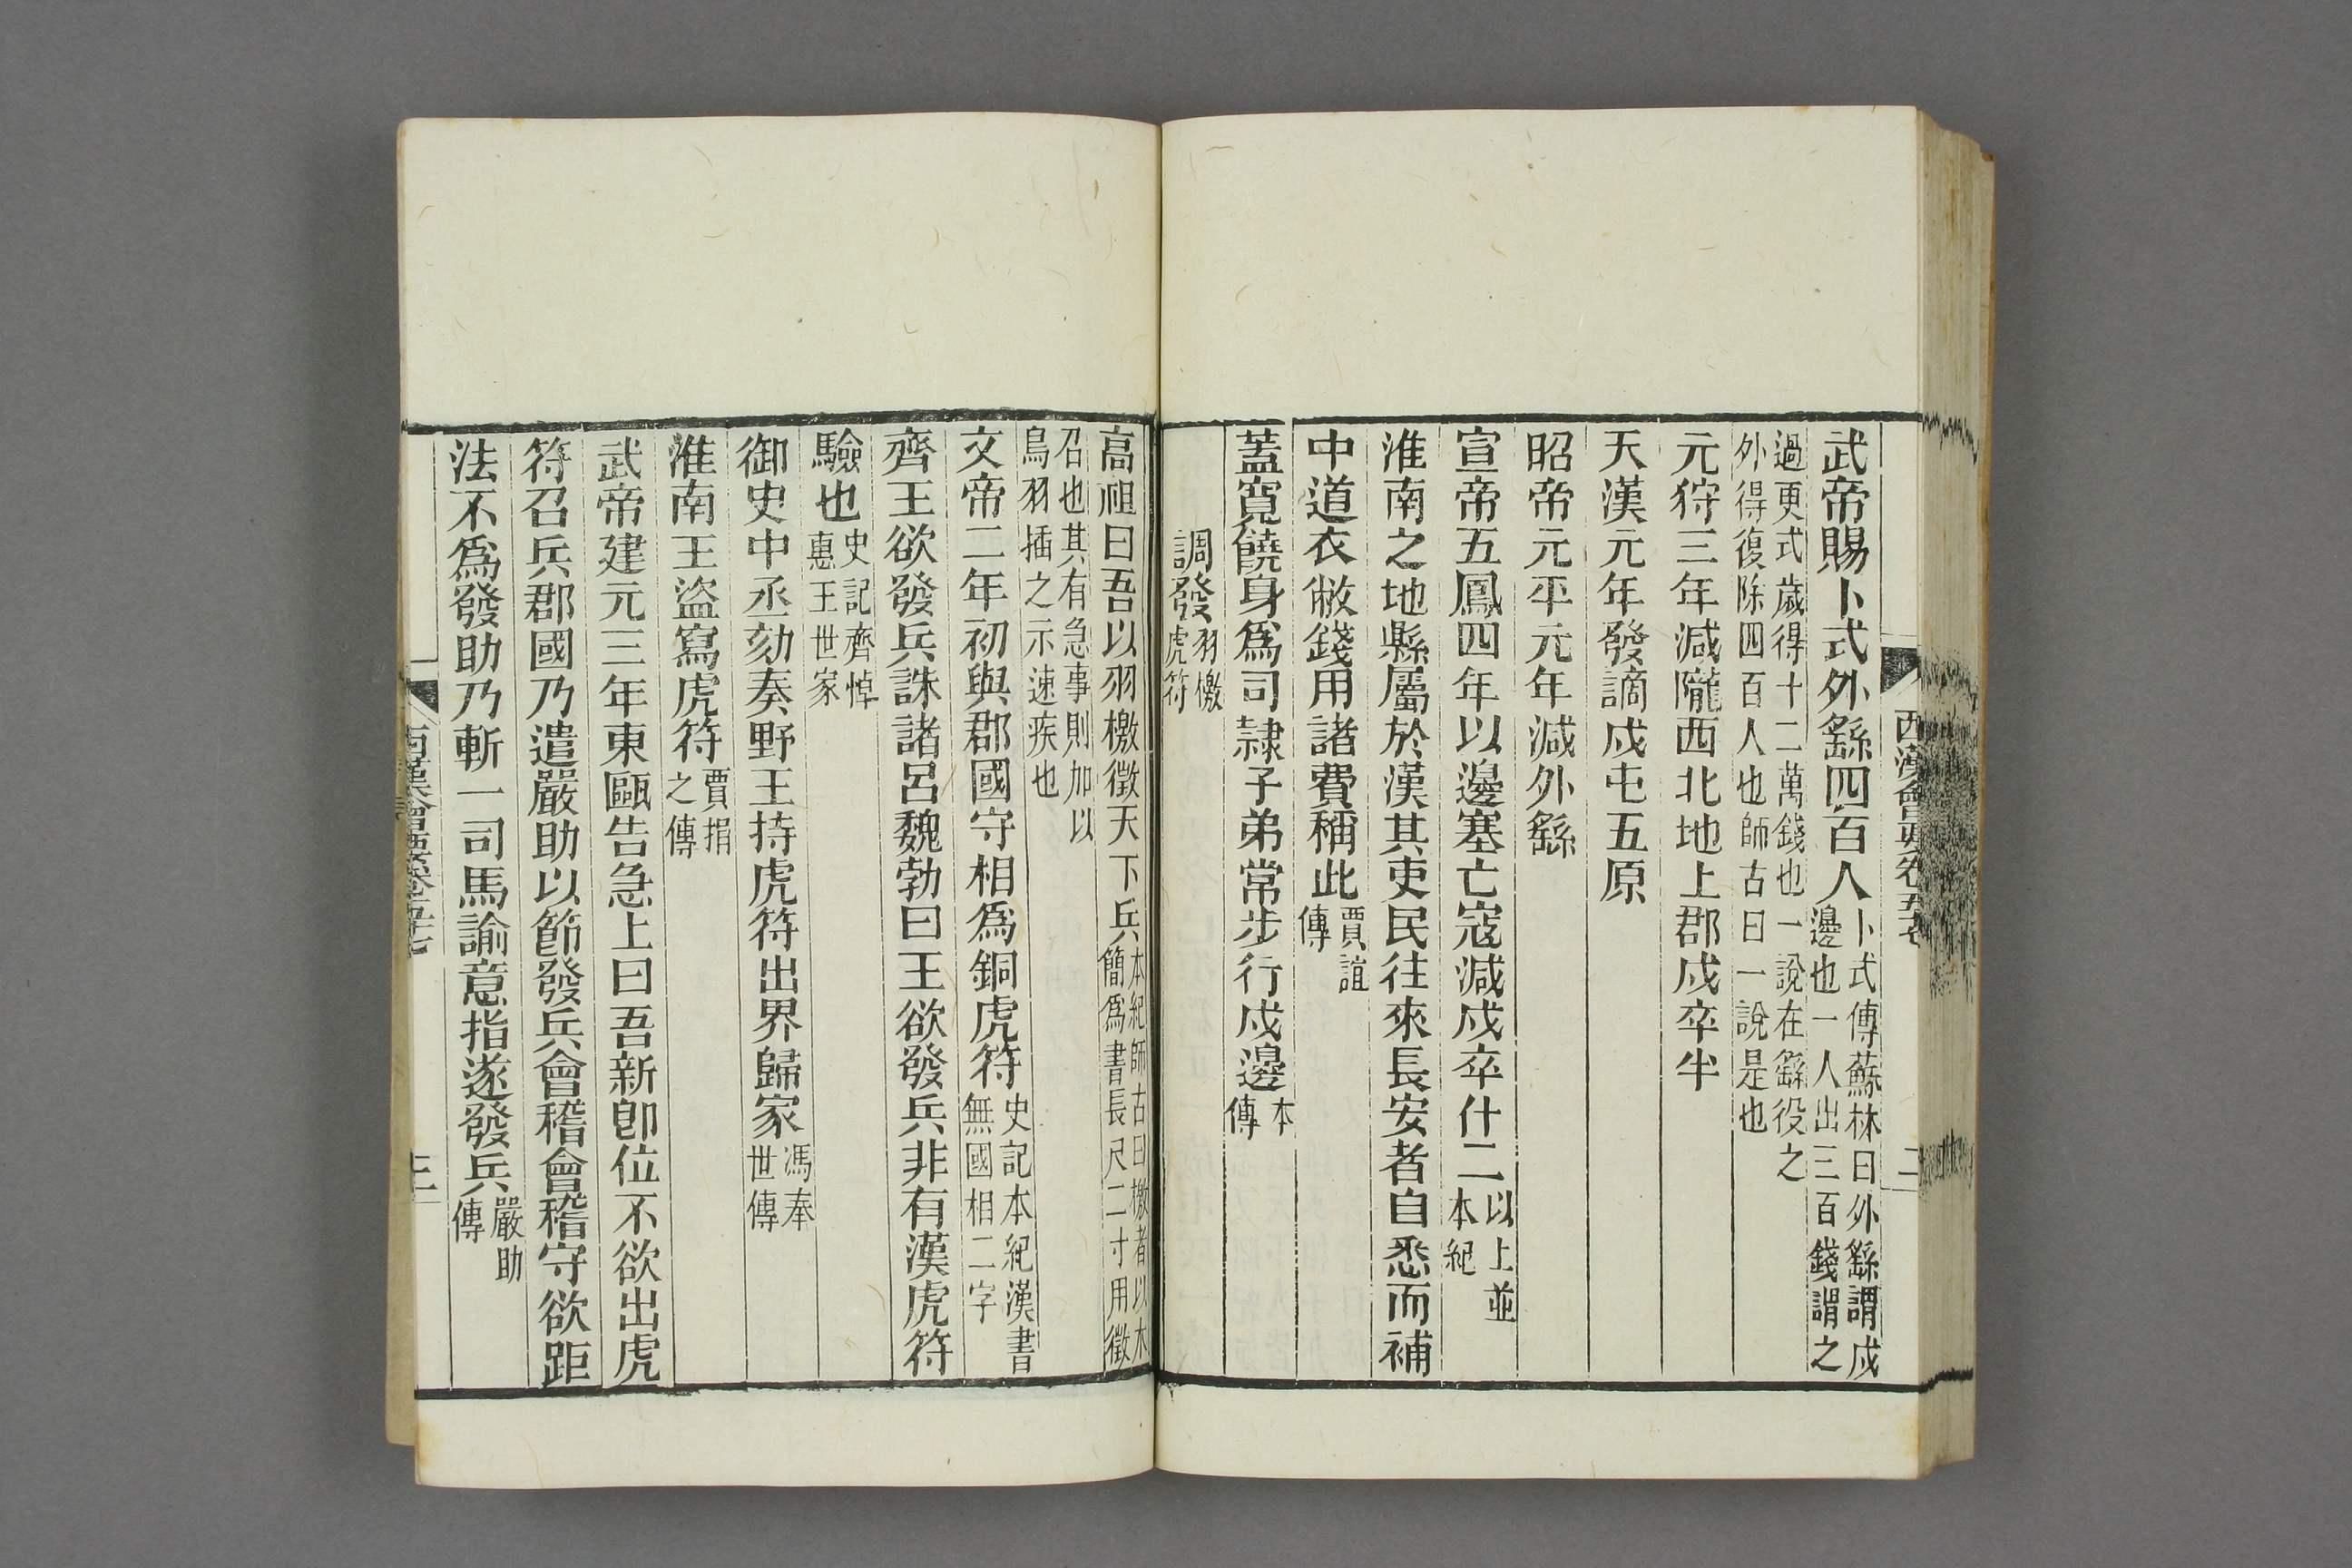 武帝賜卜式外繇四百人卜式傳蘇林曰外繇謂戍邊也一人出三百錢謂之
過更式歲得十二萬錢也一說在繇役之外得復除四百人也師古曰一說是也
元狩三年減隴西北地上郡戍卒半
天漢元年發謫戍屯五原
昭帝元平元年減外繇
宣帝五鳳四年以邊塞亡寇減戍卒什二以上並本紀
淮南之地縣屬於漢其吏民往來長安者自悉而補
中道衣敝錢用諸費稱此賈誼傳
蓋寬饒身爲司隷子弟常步行戍邊本傳
調發羽檄虎符
高祖曰吾以羽檄徵天下兵本紀師古曰檄者以木簡爲書長尺二寸用徵
召也其有急事則加以鳥羽插之示速疾也
文帝二年初與郡國守相爲銅虎符史記本紀漢書無國相二字
齊王欲發兵誅諸呂魏勃曰王欲發兵非有漢虎符
驗也史記齊悼惠王世家
御史中丞劾奏野王持虎符出界歸家馮奉世傳
淮南王盜寫虎符賈捐之傳
武帝建元三年東甌告急上曰吾新卽位不欲出虎
符召兵郡國乃遣嚴助以節發兵會稽會稽守欲距
法不爲發助乃斬一司馬諭意指遂發兵嚴助傳
西漢會要卷五十七
二
西漢會要卷五十七